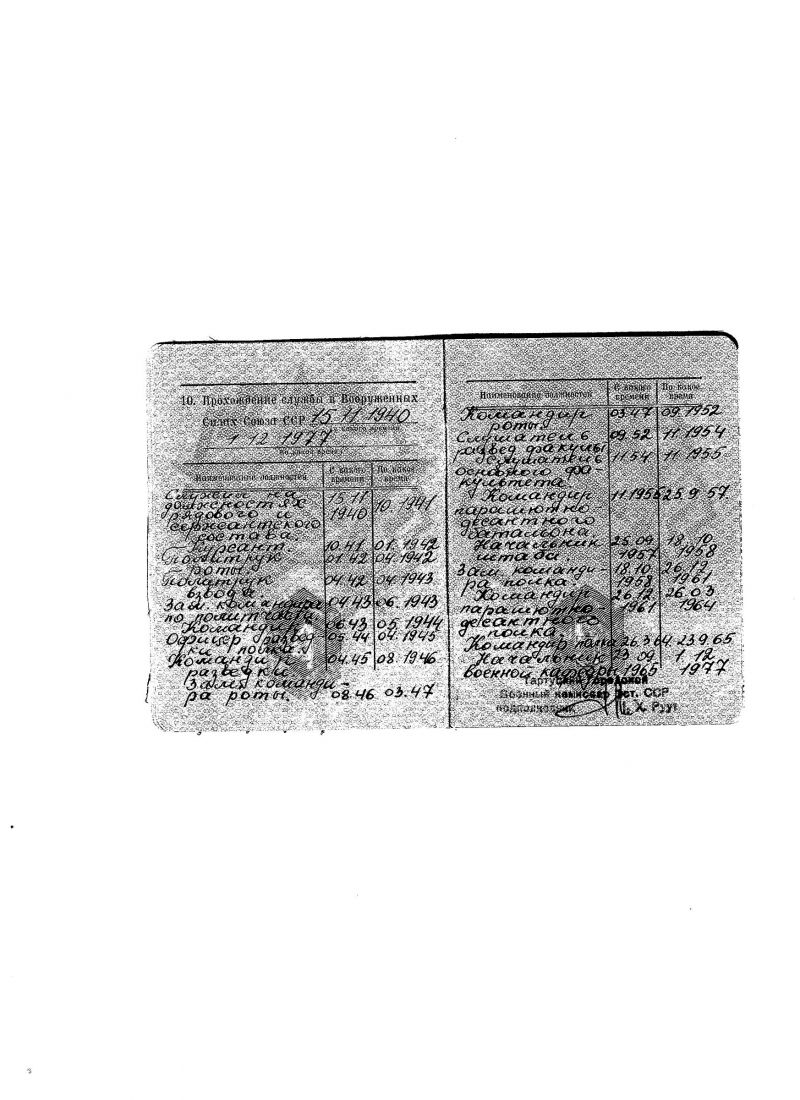 10. Прохождение службы в Вооруженных
Силах Союза ССР 15 11 1940
1 12 1977
Наименование должностей
С какого времени
По какое время
Служил на 15.11 10.1941
должностях 1940
рядового и
сержантского
состава.
Курсант. 10.41 01.1942
Политрук 01.42 04.1942
роты.
Политрук 04.42 04.1943
взвода
Зам. командира 04.43 06.1943
по политчасти
Командир 06.43 05.1944
Офицер развед- 05.44 04.1945
ки полка.
Командир 04.45 08.1946
разведки
Зам. команди-
ра роты. 08.46 03.47
Наименование должностей
С какого времени
По какое время
Командир 03.47 09.1952
роты
Слушатель 09.52 11.1954
развед факульт
Слушатель 11.54 11.1955
основного фа-
культета
Командир 11.1955 25.9 57
парашютно-
десантного
батальона
Начальник 25.09 18.10
штаба 1957 1958
Зам. команди- 18.10 26.12
ра полка 1958 1961
Командир 26.12. 26.03
парашютно- 1961 1964
десантного
полка.
Командир полка 26.3 64. 23.9 65
Начальник 23.09 1.12
военной кафедры 1965 1977
Тартуский городской
Военный комиссар Эст. ССР
подполковник Х. Рууг